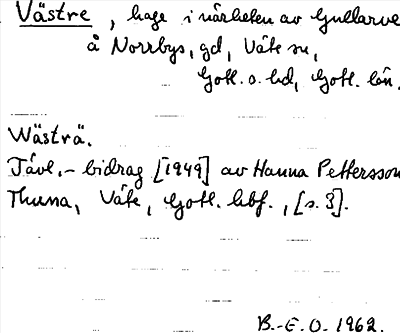 Västre, hage i närheten av Gullarve
å Norrbys, gd, Väte sn,
Gotl. s. hd, Gotl. län.
Wästrä.
Tävl.-bidrag [1949] av Hanna Pettersson
Thuna, Väte, Gotl. hbf., [s. 3].
B.-E. O. 1962.